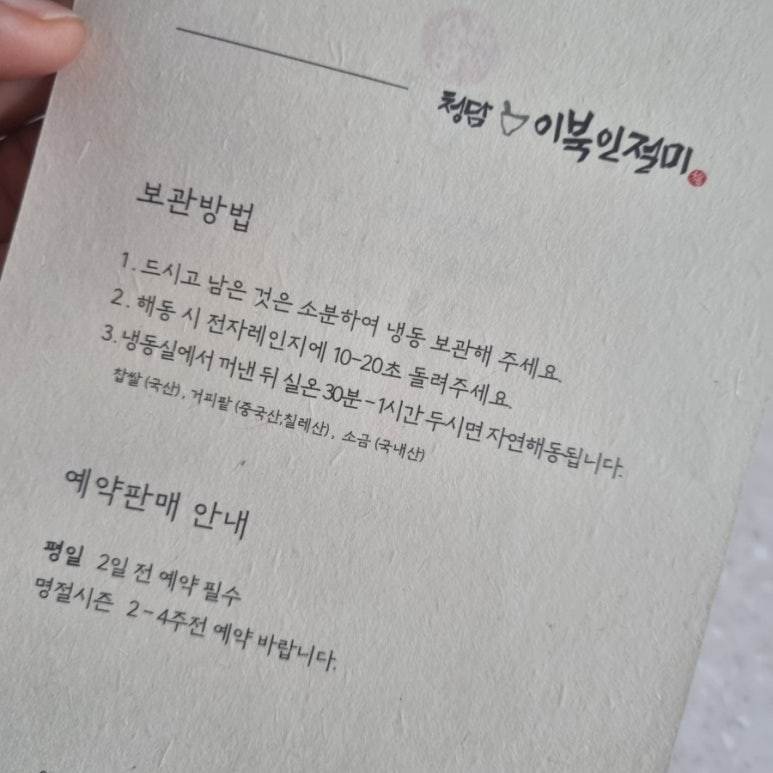 청담 이북인절미
보관방법
1. 드시고 남은 것은 소분하여 냉동 보관해 주세요.
2. 해동 시 전자레인지에 10-20초 돌려주세요.
3. 냉동실에서 꺼낸 뒤 실온 30분-1시간 두시면 자연해동됩니다.
찹쌀 (국산), 거피팥 (중국산,칠레산), 소금 (국내산)
예약판매 안내
평일 2일 전 예약 필수
명절시즌 2-4주전 예약 바랍니다.